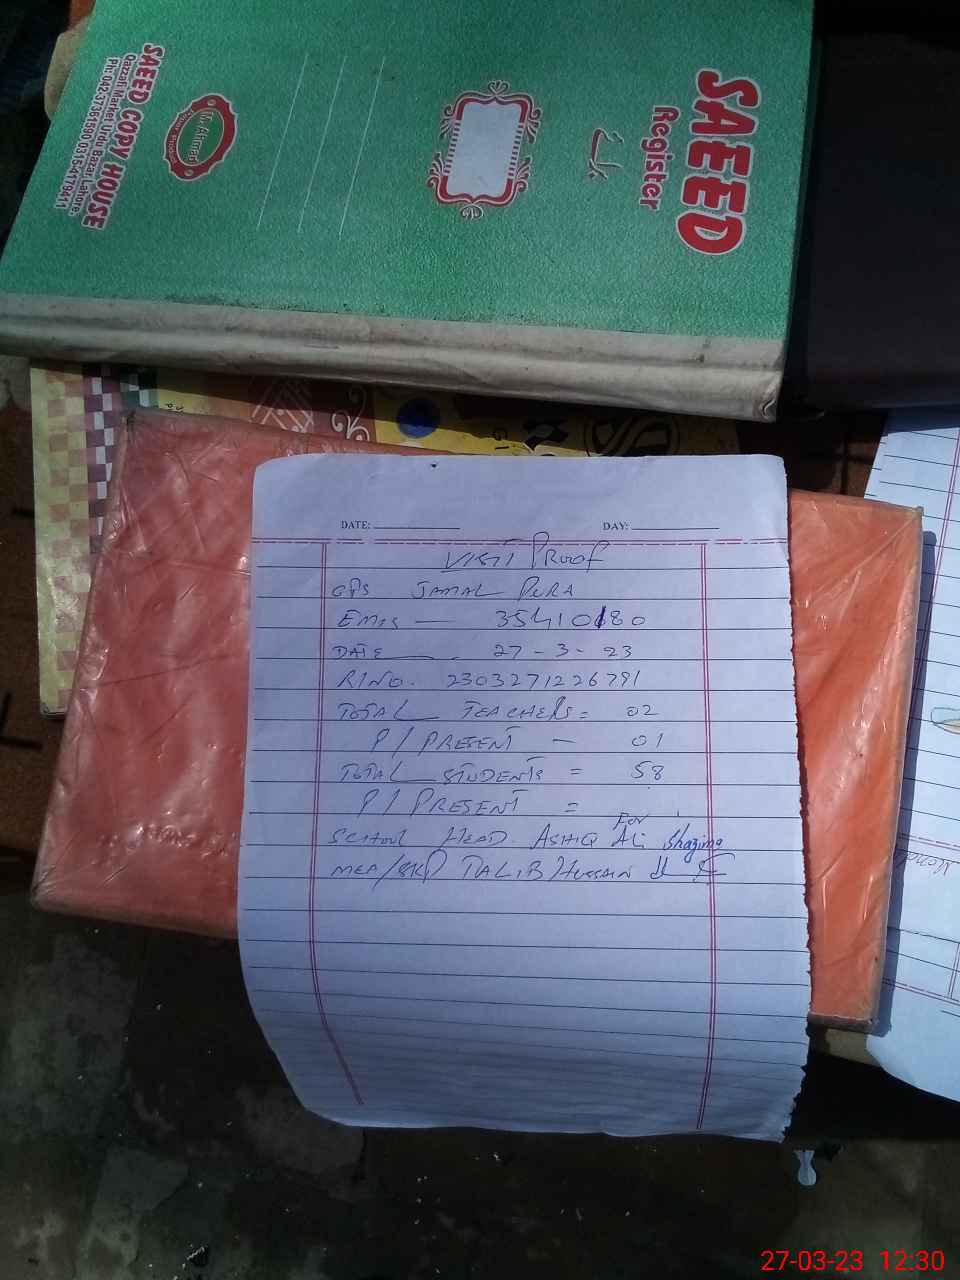 SAEED
Register
M. Ahmad
SAEED COPY HOUSE
Qazzafi Market Urdu Bazar, Lahore.
Ph: 042-37361590 0315-4179411
DATE: DAY:
VISIT PROOF
GPS JAMAL PURA
EMIS — 35410180
DATE — 27-3-23
RINO. 2303271226791
TOTAL TEACHERS = 02
P/PRESENT — 01
TOTAL STUDENTS = 58
P/PRESENT =
For
SCHOOL HEAD. ASHIQ Ali Shazima
MEA/SKP TALIB HUSSAIN
27-03-23 12:30